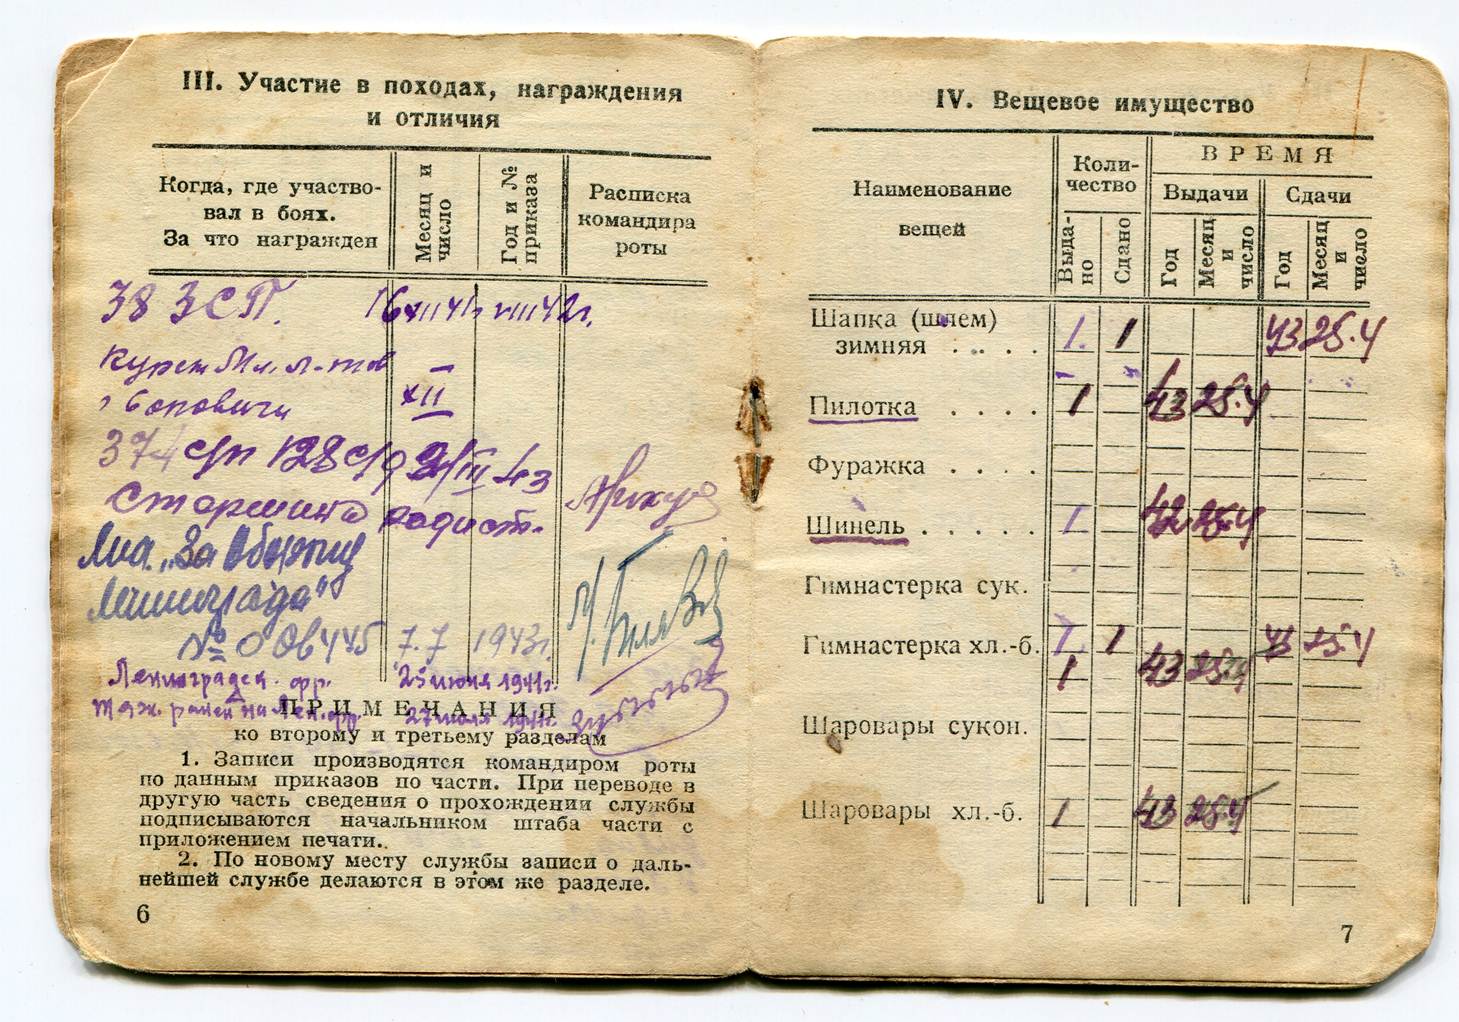 III. Участие в походах, награждения
и отличия
Когда, где участво-
вал в боях.
За что награжден
Месяц и
число
Год и №
приказа
Расписка
командира
роты
38 ЗСП. 16 XII 41г. VIII 42г.
курсы Мл. л-тов
XII
374 сп 128 с/д III 43
Старшина радист.
"За Оборону
Ленинграда"
№ 7.7 1943г.
Ленинградск. фр. 23 июня 1941г.
тяж. ранен на Лен. фр. 27 июля 1941г.
ПРИМЕЧАНИЯ
ко второму и третьему разделам
1. Записи производятся командиром роты
по данным приказов по части. При переводе в
другую часть сведения о прохождении службы
подписываются начальником штаба части с
приложением печати.
2. По новому месту службы записи о даль-
нейшей службе делаются в этом же разделе.
6
IV. Вещевое имущество
Наименование
вещей
Коли-
чество
ВРЕМЯ
Выдачи
Сдачи
Выда-
но
Сдано
Год
Месяц
и
число
Год
Месяц
и
число
Шапка (шлем)
зимняя . . . . 1. 1 43 25.4
Пилотка . . . . 1 43 25.4
Фуражка . . . .
Шинель . . . . . 1 42 25.4
Гимнастерка сук.
Гимнастерка хл.-б. 1. 1 43 25.4
1 43 25.4
Шаровары сукон.
Шаровары хл.-б. 1 43 25.4
7